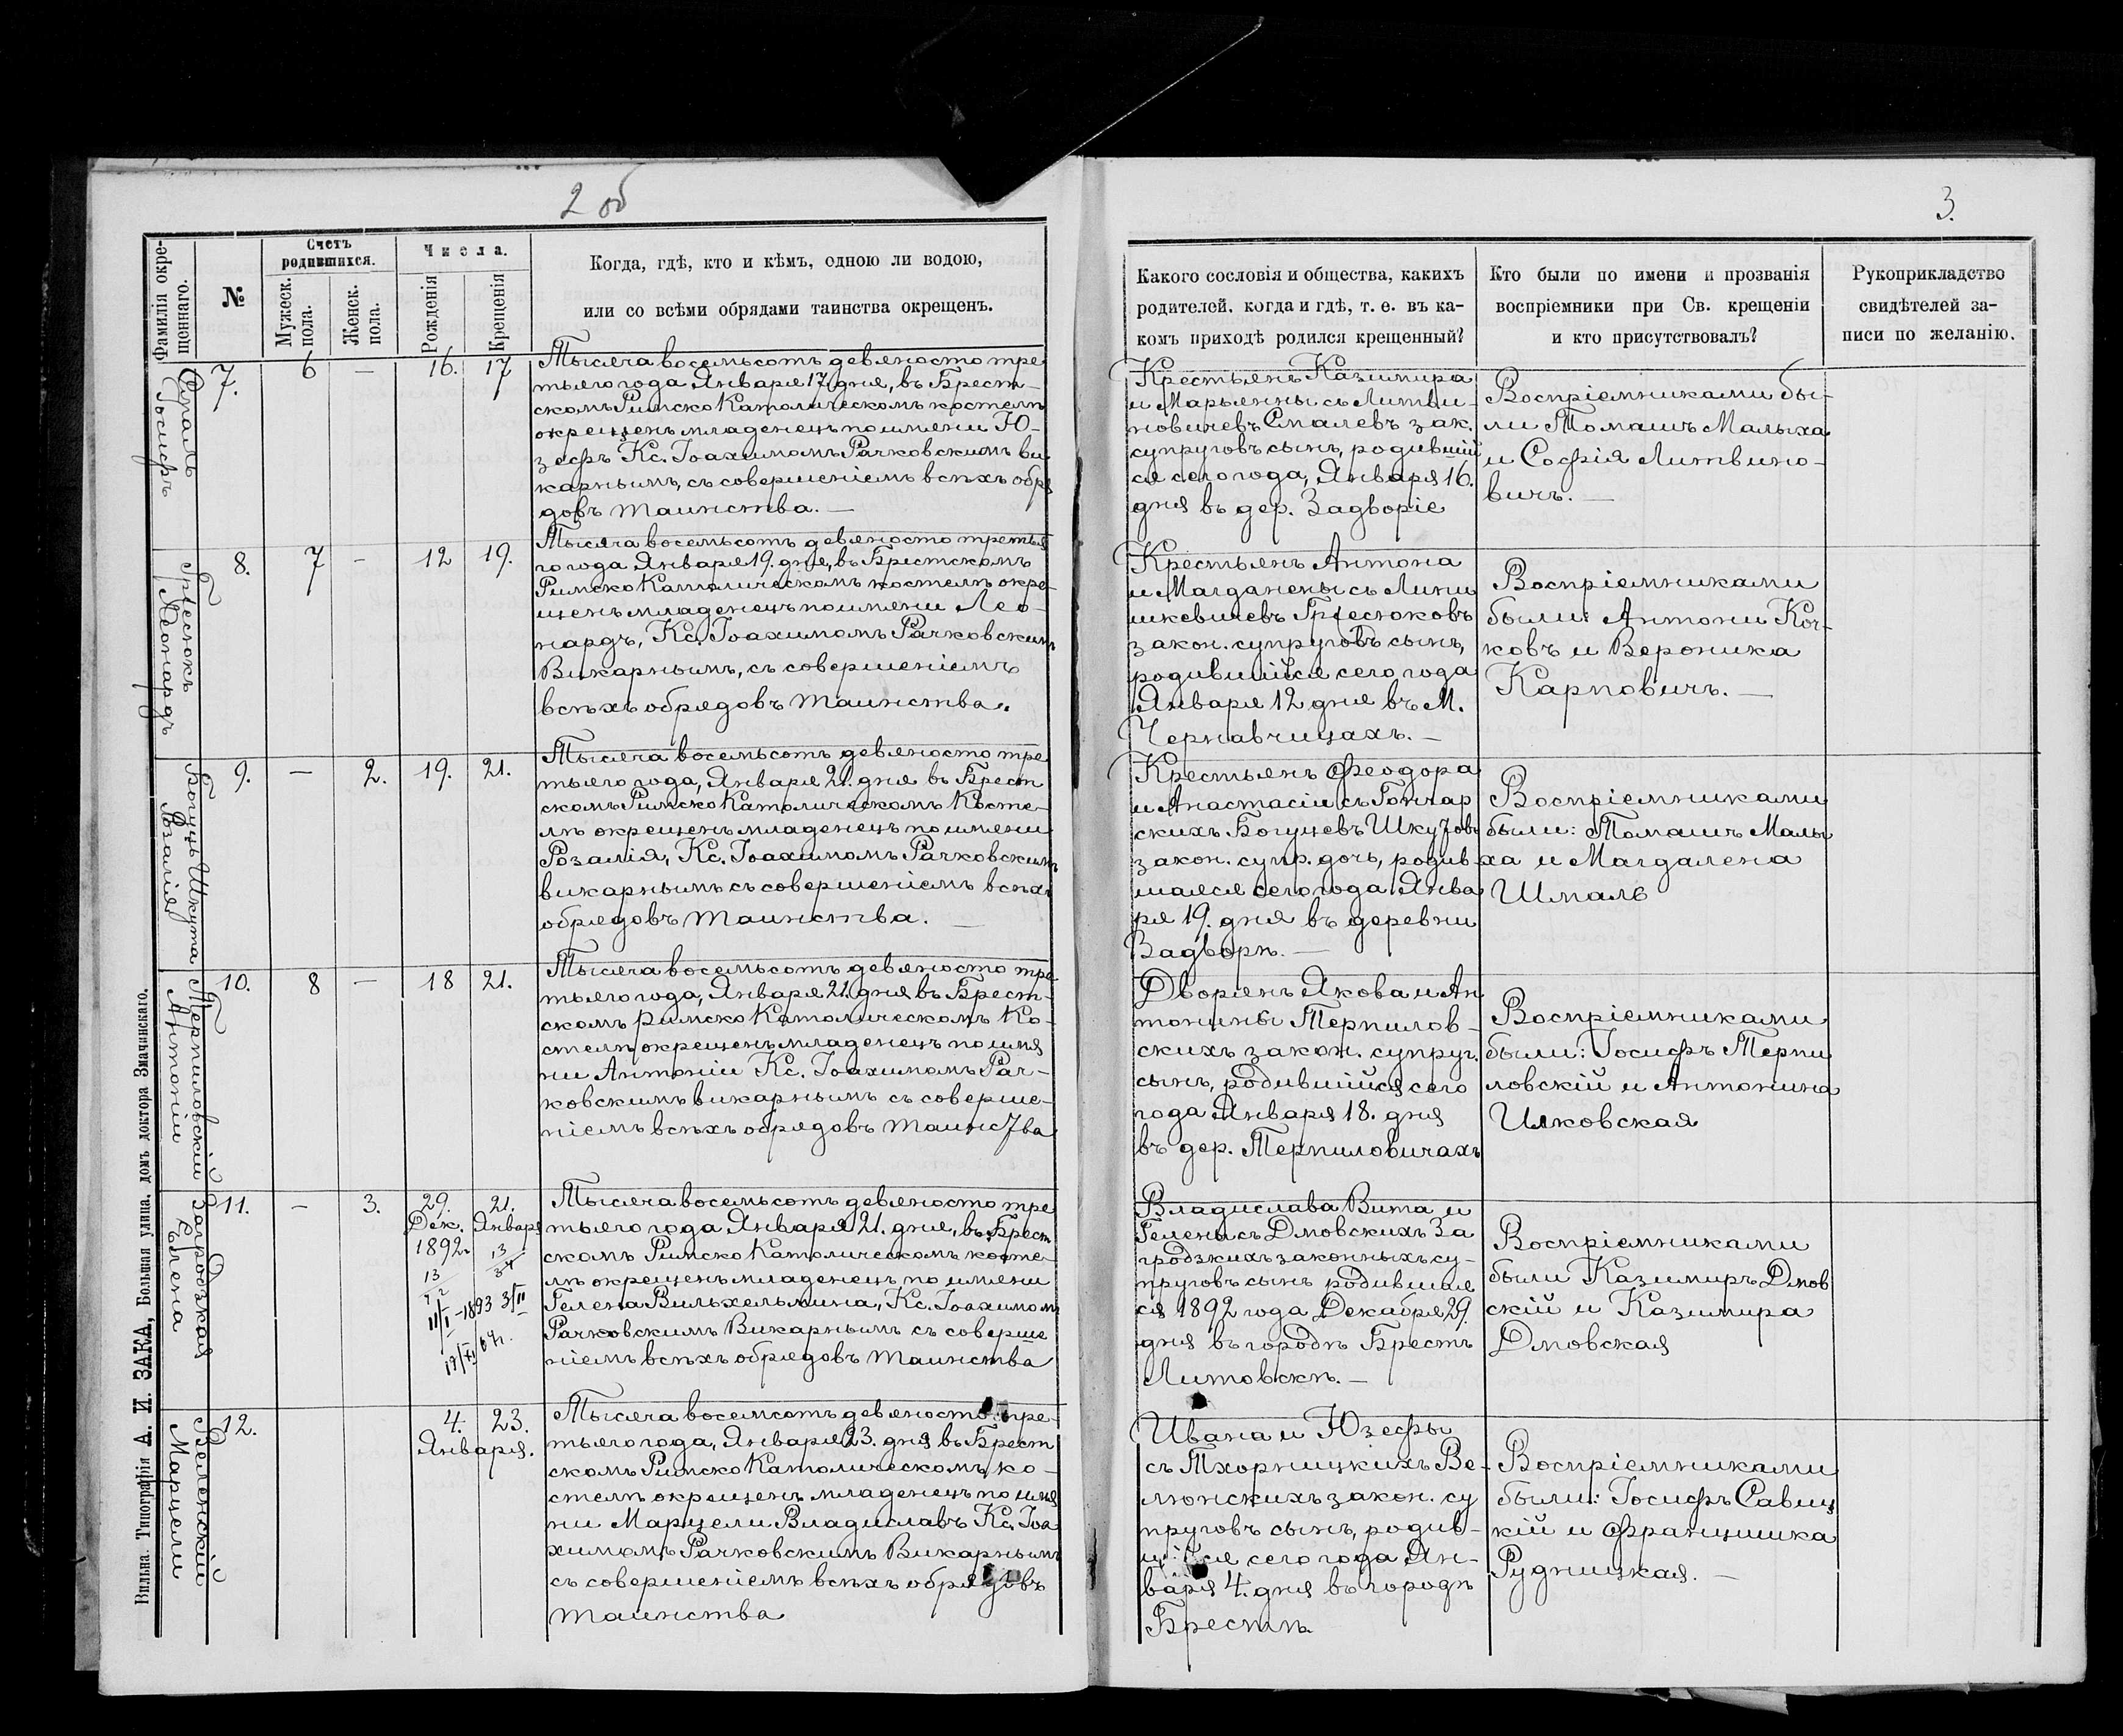 2 об
3.
Фамилія окре-
щеннаго.
№
Счетъ
родившихся.
Мужеск.
пола.
Женск.
пола.
Числа.
Рожденія
Крещенія
Когда, гдѣ, кто и кѣмъ, одною ли водою,
или со всѣми обрядами таинства окрещенъ.
Какого сословія и общества, какихъ
родителей, когда и гдѣ, т. е. въ ка-
комъ приходѣ родился крещенный?
Кто были по имени и прозванія
воспріемники при Св. крещеніи
и кто присутствовалъ?
Рукоприкладство
свидѣтелей за-
писи по желанію.
Смаль
Іосифъ
7.
6
—
16.
17
Тысяча восемьсотъ девяносто тре
тьяго года Января 17 дня, въ Брест-
скомъ Римско Католическомъ костелѣ
окрещенъ младенецъ по имени Ю-
зефъ Кс. Іоахимомъ Рачковскимъ ви
карнымъ, съ совершеніемъ всѣхъ обря
довъ таинства. —
Крестьянъ Казимира
и Марьянны съ Литви-
новичевъ Смалевъ зак.
супруговъ сынъ, родивший
ся сего года, Января 16.
дня въ дер. Задворіе
Воспріемниками бы-
ли Томашъ Малыха
и Софія Литвино-
вичъ. —
Грѣсюкъ
Леонардъ
8.
7
-
12
19.
Тысяча восемьсотъ девяносто третья
го года Января 19. дня, въ Брестскомъ
Римско Католическомъ костелѣ окре-
щенъ младенецъ по имени Лео-
нардъ, Кс. Іоахимомъ Рачковскимъ
Викарнымъ, съ совершеніемъ
всѣхъ обрядовъ таинства.
Крестьянъ Антона
и Магдалены съ Лини
шкевичевъ Грѣсюковъ
закон. супруговъ сынъ,
родившійся сего года
Января 12 дня въ М.
Чернавчицахъ. —
Воспріемниками
были: Антони Коч-
ковъ и Вероника
Карповичъ. —
Богуцъ Шкута
Розалія
9.
—
2.
19.
21.
Тысяча восемьсотъ девяносто тре
тьяго года, Января 21. дня въ Брест
скомъ Римско Католическомъ Косте-
лѣ окрещенъ младенецъ по имени
Розалія, Кс. Іоахимомъ Рачковскимъ
викарнымъ съ совершеніемъ всѣхъ
обрядовъ таинства. —
Крестьянъ Феодора
и Анастасіи съ Гончар
скихъ Богуцевъ Шкутовъ
закон. супр. дочь, родив-
шаяся сего года Янва
ря 19. дня въ деревни
Задворѣ. —
Воспріемниками
были: Томашъ Малы
ха и Магдалена
Шмаль
Терпиловскій
Антоніи
10.
8
—
18
21.
Тысяча восемьсотъ девяносто тре-
тьяго года, Января 21. дня въ Брест-
скомъ римско Католическомъ Ко-
стелѣ окрещенъ младенецъ по име
ни Антоніи Кс. Іоахимомъ Рач-
ковскимъ викарнымъ съ соверше-
ніемъ всѣхъ обрядовъ таинства
Дворянъ Якова и Ан
тонины Терпилов-
скихъ закон. супруг.
сынъ, родившійся сего
года Января 18. дня
въ дер. Терпиловичахъ
Воспріемниками
были: Іосифъ Терпи
ловскій и Антонина
Илковская
Загродзкая
Елена
11.
-
3.
29.
Дек.
1892.
21.
Января
Тысяча восемьсотъ девяносто тре
тьяго года Января 21. дня, въ Брест
скомъ Римско Католическомъ косте-
лѣ окрещенъ младенецъ по имени
Гелена Вильхельмина, Кс. Іоахимомъ
Рачковскимъ Викарнымъ съ соверше
ніемъ всѣхъ обрядовъ таинства
Владислава Вита и
Гелены съ Дмовскихъ За
гродзкихъ законныхъ су-
пруговъ сынъ родившая
ся 1892 года Декабря 29.
дня въ городѣ Брестъ
Литовскѣ. —
Воспріемниками
были Казимиръ Дмов
скій и Казимира
Дмовская
Велюнскій
Марцели
12.
4.
23.
Января.
Тысяча восемсотъ девяносто тре-
тьяго года, Января 23. дня въ Брест
скомъ Римско Католическомъ ко-
стелѣ окрещенъ младенецъ по име
ни Марцели Владиславъ Кс. Іоа
химомъ Рачковскимъ Викарнымъ
съ совершеніемъ всѣхъ обрядовъ
таинства
Ивана и Юзефы
съ Тхорницкихъ Ве-
люнскихъ закон. су
пруговъ сынъ, родив-
ся сего года Ян-
варя 4. дня въ городѣ
Брестѣ
Воспріемниками
были: Іосифъ Савиц
кій и Францишка
Рудницкая. —
Вильна. Типографія А. И. ЗАКА, Большая улица, домъ доктора Змачинскаго.